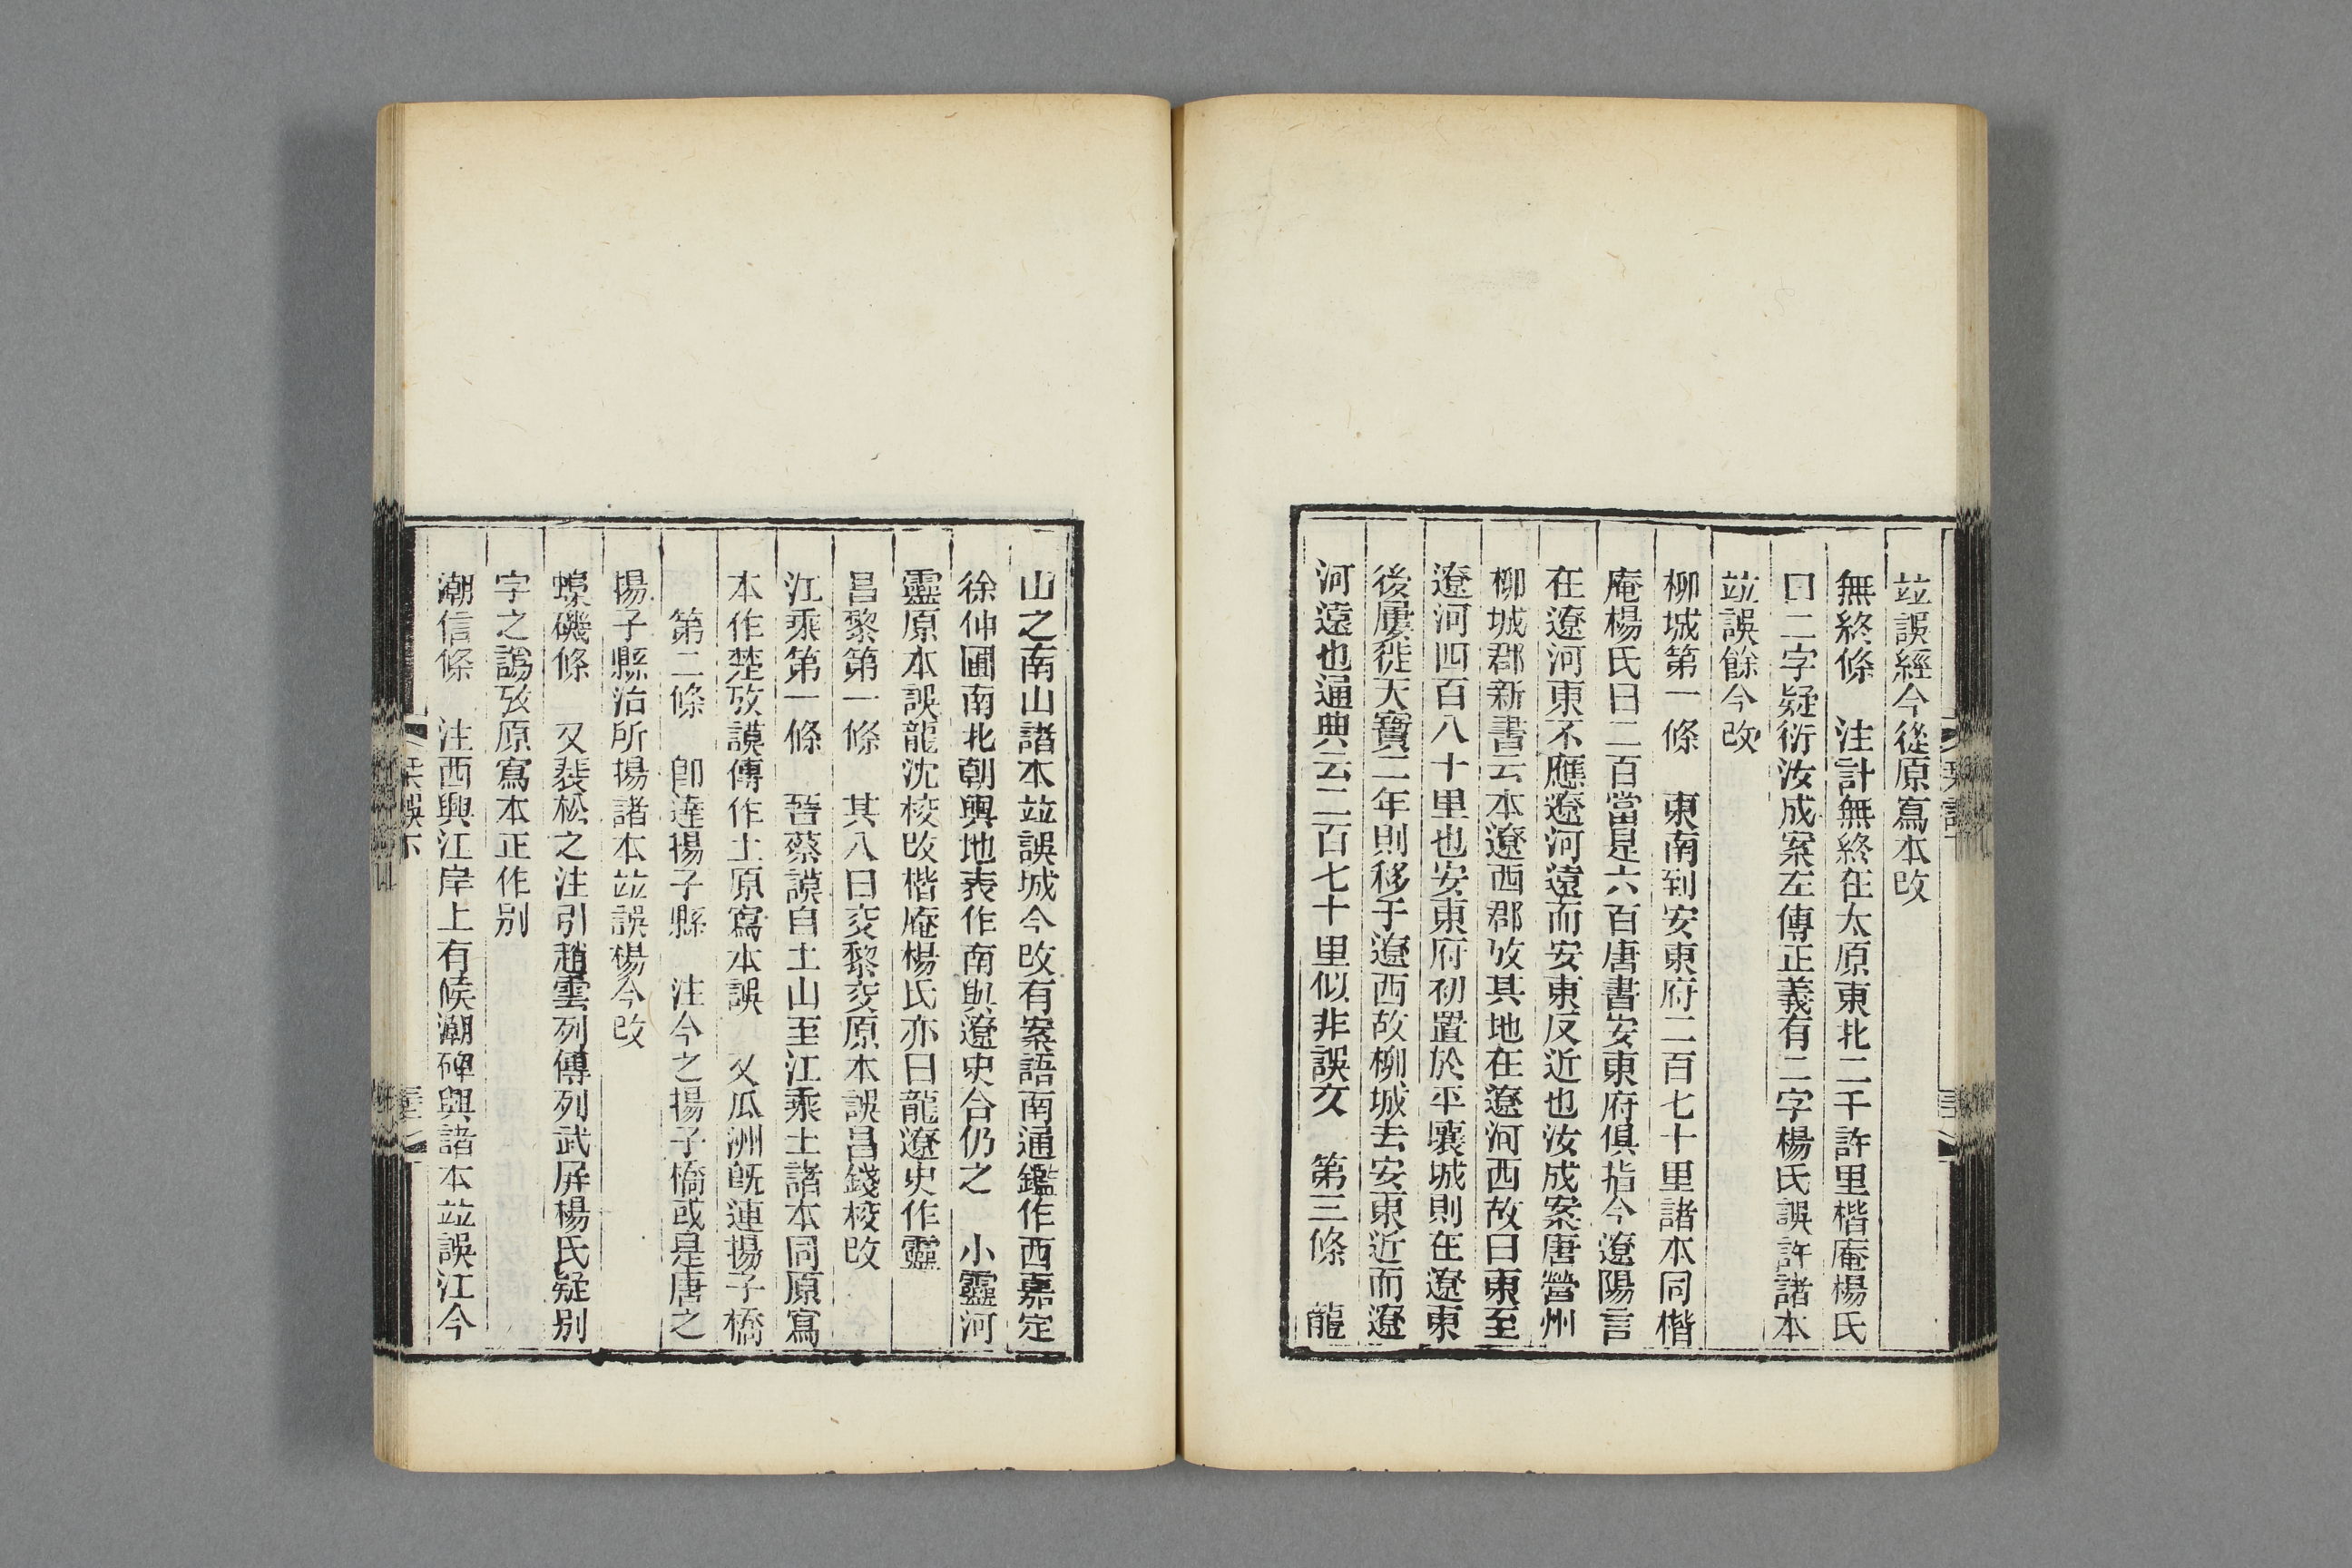 竝誤經今從原寫本改
無終條　注計無終在太原東北二千許里楷庵楊氏
曰二字疑衍汝成案左傳正義有二字楊氏誤許諸本
竝誤餘今改
柳城第一條　東南到安東府二百七十里諸本同楷
庵楊氏曰二百當是六百唐書安東府俱指今遼陽言
在遼河東不應遼河遠而安東反近也汝成案唐營州
柳城郡新書云本遼西郡攷其地在遼河西故曰東至
遼河四百八十里也安東府初置於平壤城則在遼東
後屢徙天寶二年則移于遼西故柳城去安東近而遼
河遠也通典云二百七十里似非誤文　第三條　龍
山之南山諸本竝誤城今改有案語南通鑑作西嘉定
徐仲圃南北朝輿地表作南與遼史合仍之　小靈河
靈原本誤龍沈校改楷庵楊氏亦曰龍遼史作靈
昌黎第一條　其八曰交黎交原本誤昌錢校改
江乘第一條　晉蔡謨自土山至江乘土諸本同原寫
本作楚攷謨傳作土原寫本誤　又瓜洲既連揚子橋
第二條　卽達揚子縣　注今之揚子橋或是唐之
揚子縣治所揚諸本竝誤楊今改
蟂磯條　又裴松之注引趙雲列傳列武屏楊氏疑别
字之譌攷原寫本正作别
潮信條　注西興江岸上有候潮碑興諸本竝誤江今
栞誤下